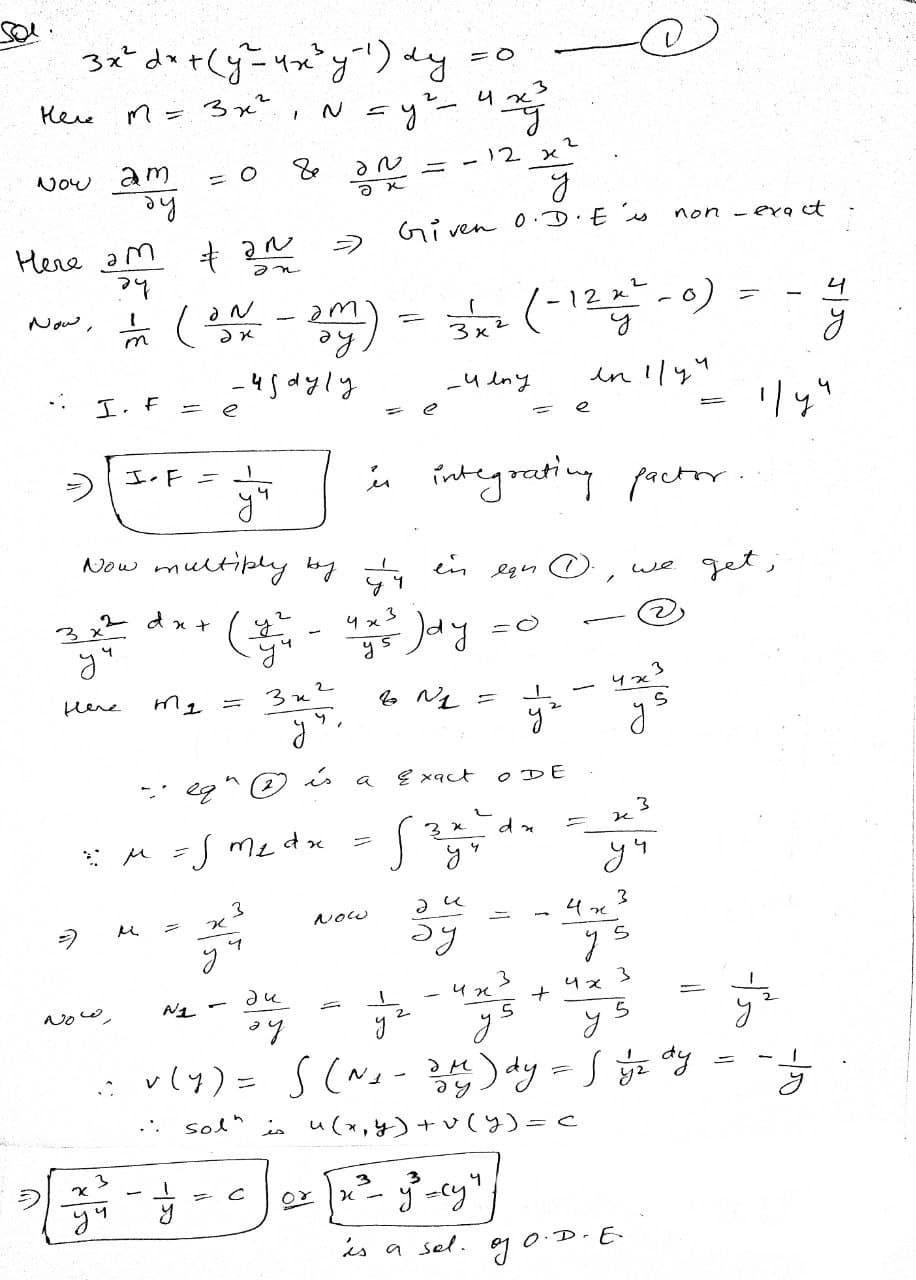 Sol.
3x² dx + (y² - 4x³ y⁻¹) dy = 0 — ①
Here M = 3x² , N = y² - 4 x³/y
Now ∂M/∂y = 0 & ∂N/∂x = -12 x²/y .
Here ∂M/∂y ≠ ∂N/∂x ⇒ Given O.D.E is non-exact .
Now, 1/M (∂N/∂x - ∂M/∂y) = 1/3x² (-12 x²/y - 0) = - 4/y
∴ I.F = e^(-4∫dy/y) = e^(-4 ln y) = e^(ln 1/y⁴) = 1/y⁴
⇒ I.F = 1/y⁴ is integrating factor .
Now multiply by 1/y⁴ in eqn ① , we get ;
3x²/y⁴ dx + (y²/y⁴ - 4x³/y⁵) dy = 0 — ②
Here M₁ = 3x²/y⁴ , & N₁ = 1/y² - 4x³/y⁵
∵ eqⁿ ② is a Exact ODE .
∵ u = ∫ M₁ dx = ∫ 3x²/y⁴ dx = x³/y⁴
⇒ u = x³/y⁴ Now ∂u/∂y = - 4x³/y⁵
Now, N₁ - ∂u/∂y = 1/y² - 4x³/y⁵ + 4x³/y⁵ = 1/y²
∴ v(y) = ∫ (N₁ - ∂u/∂y) dy = ∫ 1/y² dy = - 1/y .
∴ solⁿ is u(x,y) + v(y) = c
⇒ x³/y⁴ - 1/y = c or x³ - y³ = cy⁴
is a sol. of O.D.E.